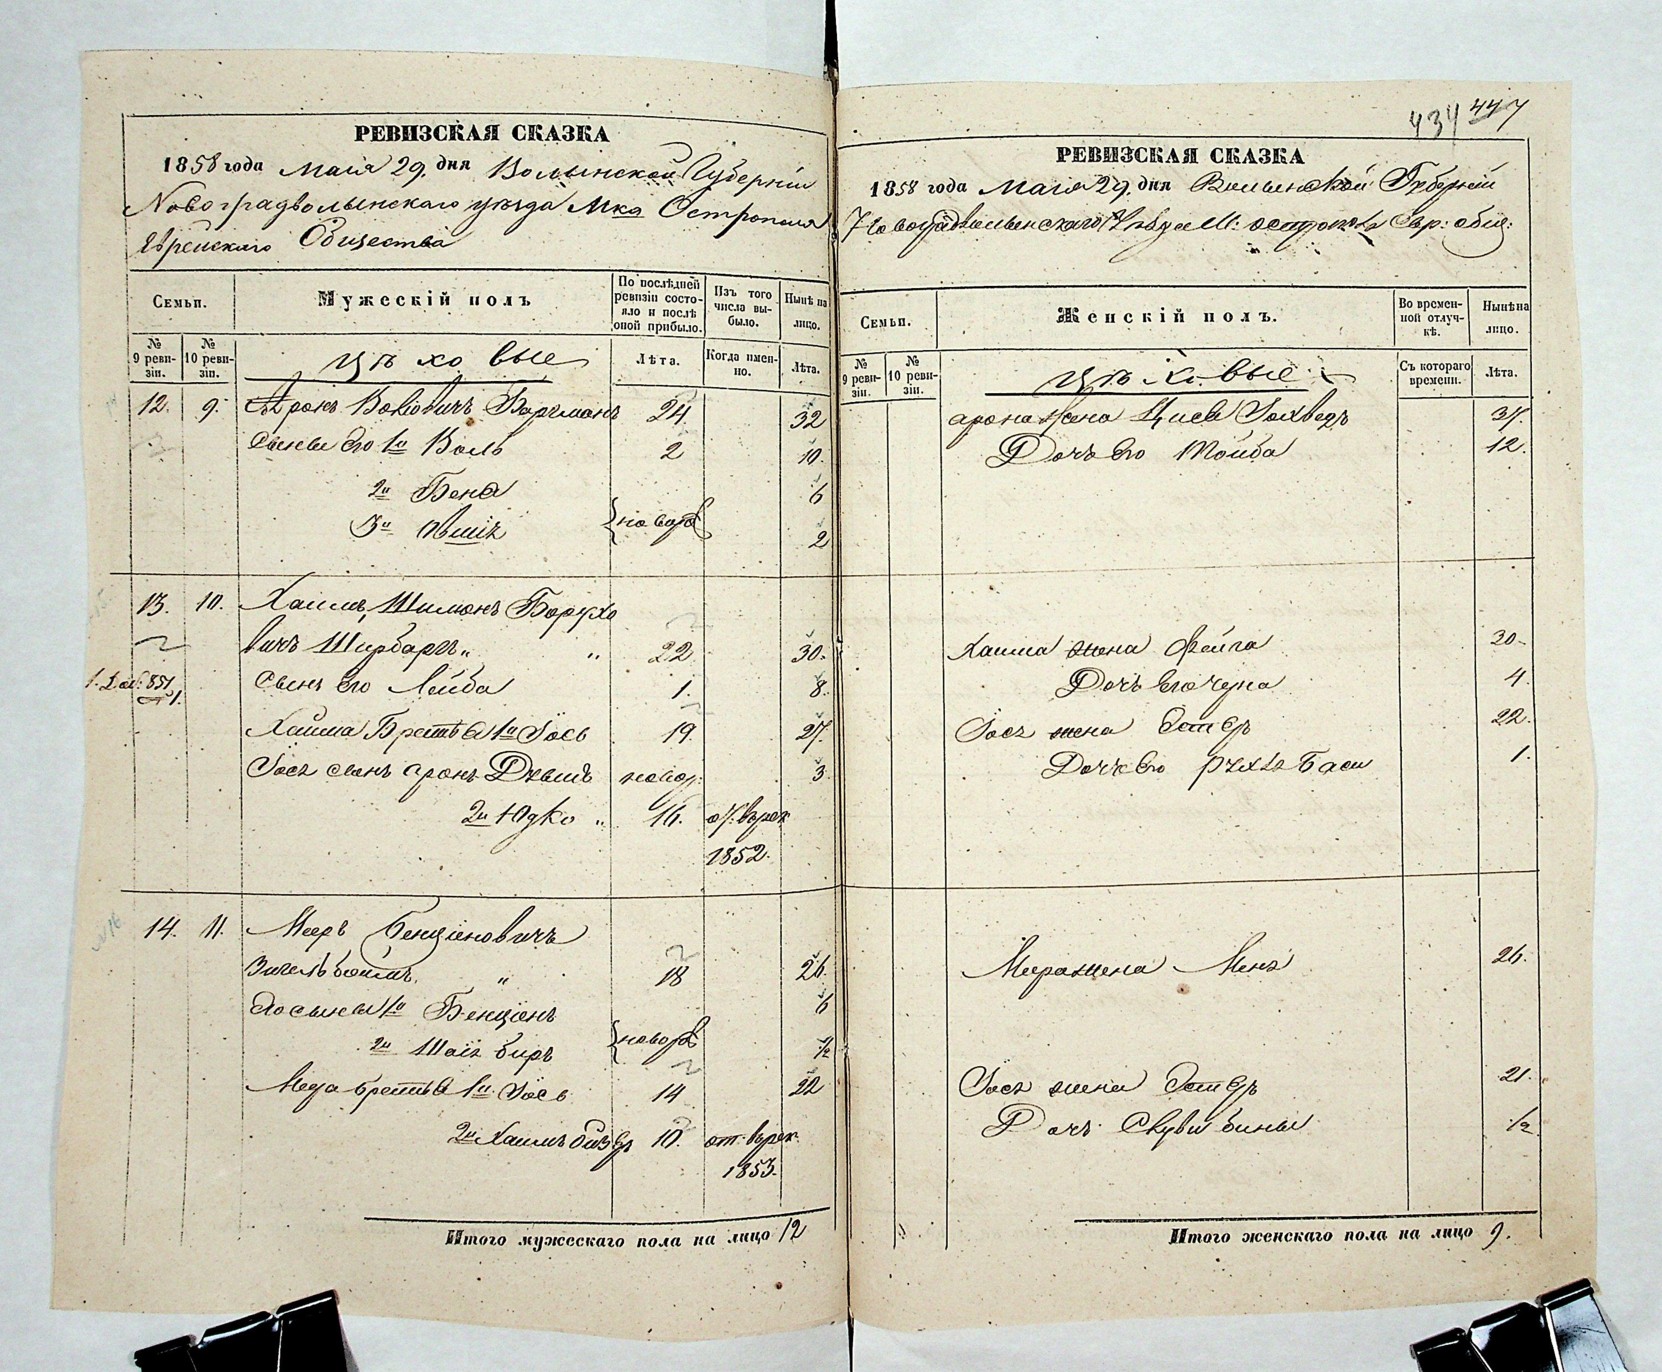 РЕВИЗСКАЯ СКАЗКА
1858 года Маия 29. дня Волынской Губерніи
Новоградволынскаго уѣзда Мка Острополя
Еврейскаго Общества
Семьи.
Мужескій полъ
По послѣдней ревизіи состояло и послѣ оной прибыло.
Изъ того числа выбыло.
Нынѣ на лицо.
№ 9 ревизіи.
№ 10 ревизіи.
Цѣховые
Лѣта.
Когда именно.
Лѣта.
12. 9. Аронъ Волковичъ Бергманъ 24 32
Сыны его 1й Воль 2 10.
2й Бена 6
3й новор. 2
13. 10. Хаимъ Шимонъ Борухо
вичъ 22 30.
851
Сынъ его Лейба 1. 8.
Хаима Братья 1й Іось 19. 27.
Іося сынъ Аронъ Дувыдъ новор. 3.
2й Юдко „ 16. 1852.
14. 11. Мееръ Бенціеновичъ
„ 18 26.
Его сыны 1й Бенціенъ 6
2й новор. ½
братья 1й Іось 14 22
2й Хаимъ 10. 1853.
Итого мужескаго пола на лицо 12
434 447
РЕВИЗСКАЯ СКАЗКА
1858 года Маия 29. дня Волынской Губерніи
Новоградволынскаго Уѣзда М: Острополя Евр: общ:
Семьи.
Женскій полъ.
Во временной отлучкѣ.
Нынѣ на лицо.
№ 9 ревизіи.
№ 10 ревизіи.
Цѣховые
Съ котораго времени.
Лѣта.
Арона жена 31.
Дочь его Тойба 12.
Хаима жена Фейга 30.
Дочь его 4.
Іося жена Эстеръ 22.
Дочь его Рухля Бася 1.
Меера жена 26.
Іося жена Эстеръ 21.
Дочь ½
Итого женскаго пола на лицо 9.